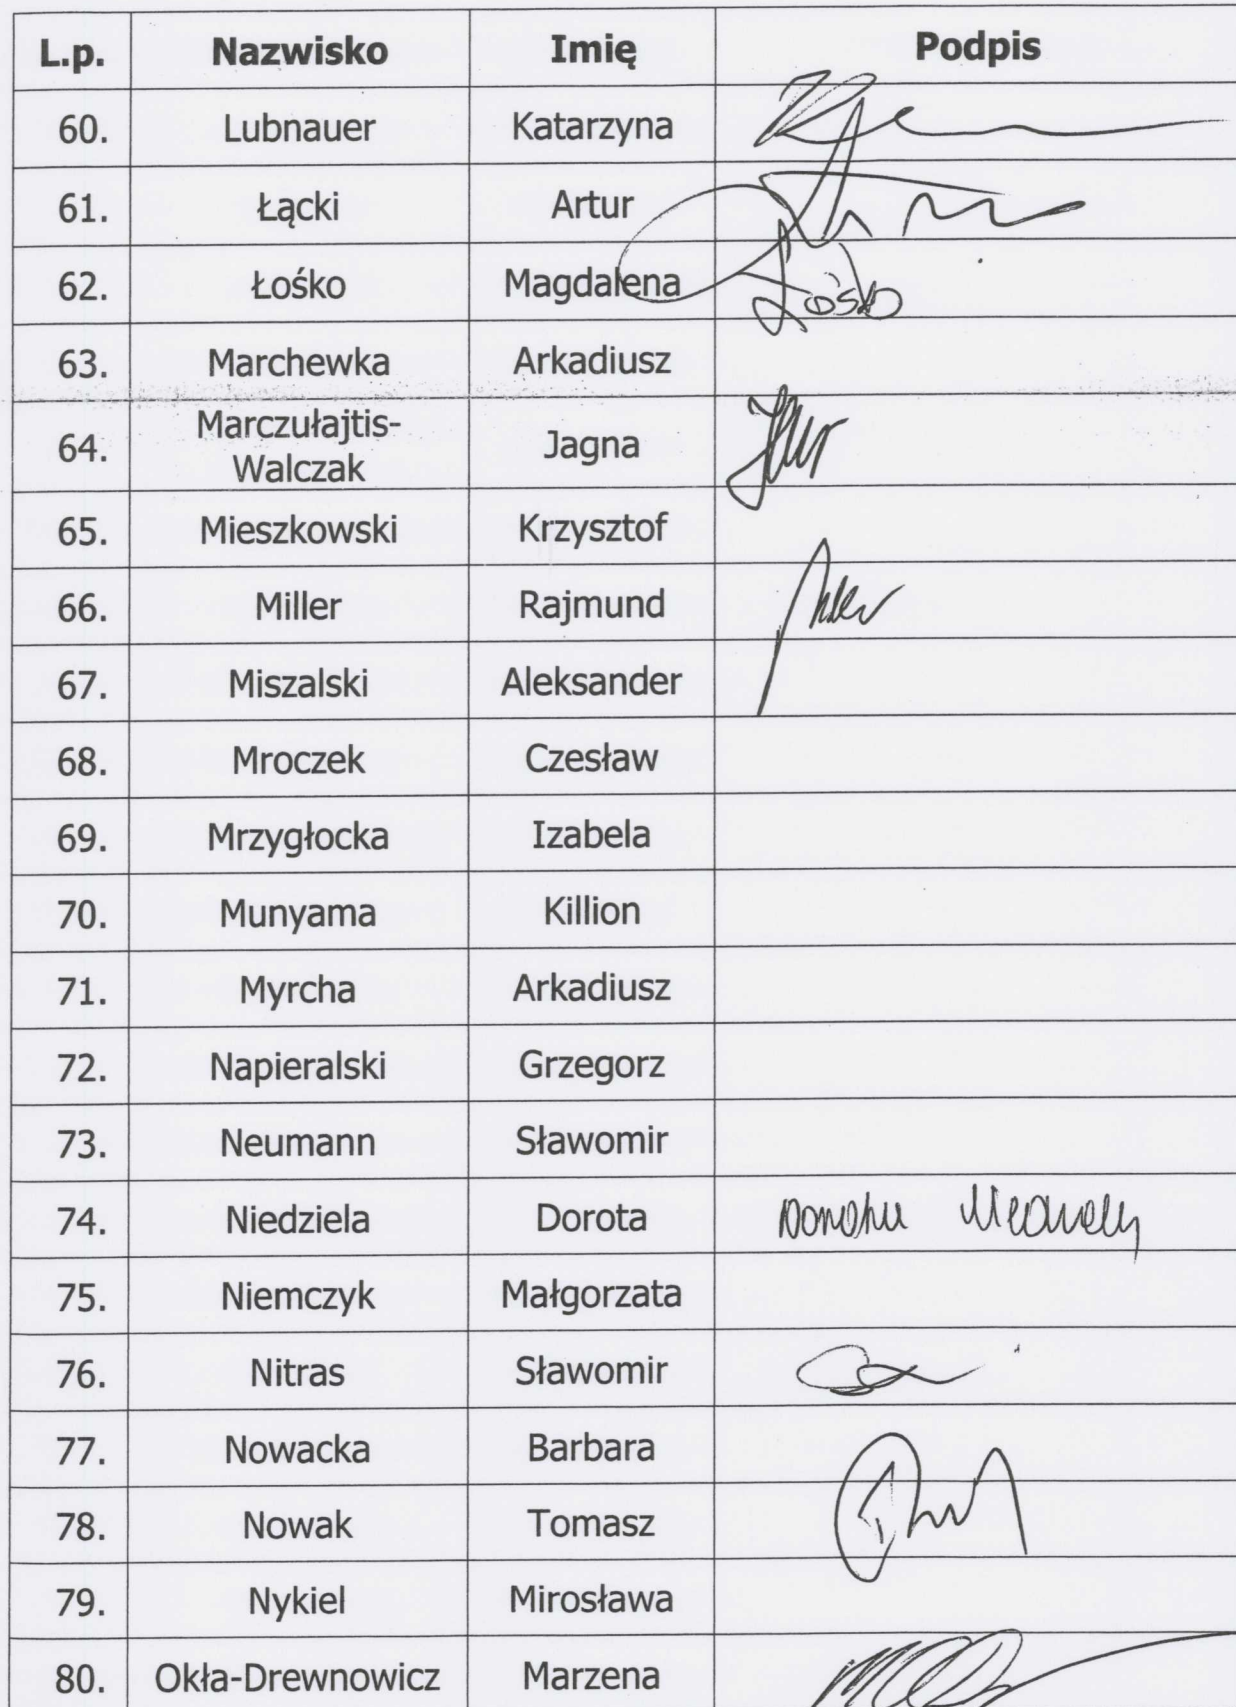 L.p. Nazwisko Imię Podpis
60. Lubnauer Katarzyna
61. Łącki Artur
62. Łośko Magdalena Łośko
63. Marchewka Arkadiusz
64. Marczułajtis-
Walczak Jagna
65. Mieszkowski Krzysztof
66. Miller Rajmund
67. Miszalski Aleksander
68. Mroczek Czesław
69. Mrzygłocka Izabela
70. Munyama Killion
71. Myrcha Arkadiusz
72. Napieralski Grzegorz
73. Neumann Sławomir
74. Niedziela Dorota
75. Niemczyk Małgorzata
76. Nitras Sławomir
77. Nowacka Barbara
78. Nowak Tomasz
79. Nykiel Mirosława
80. Okła-Drewnowicz Marzena